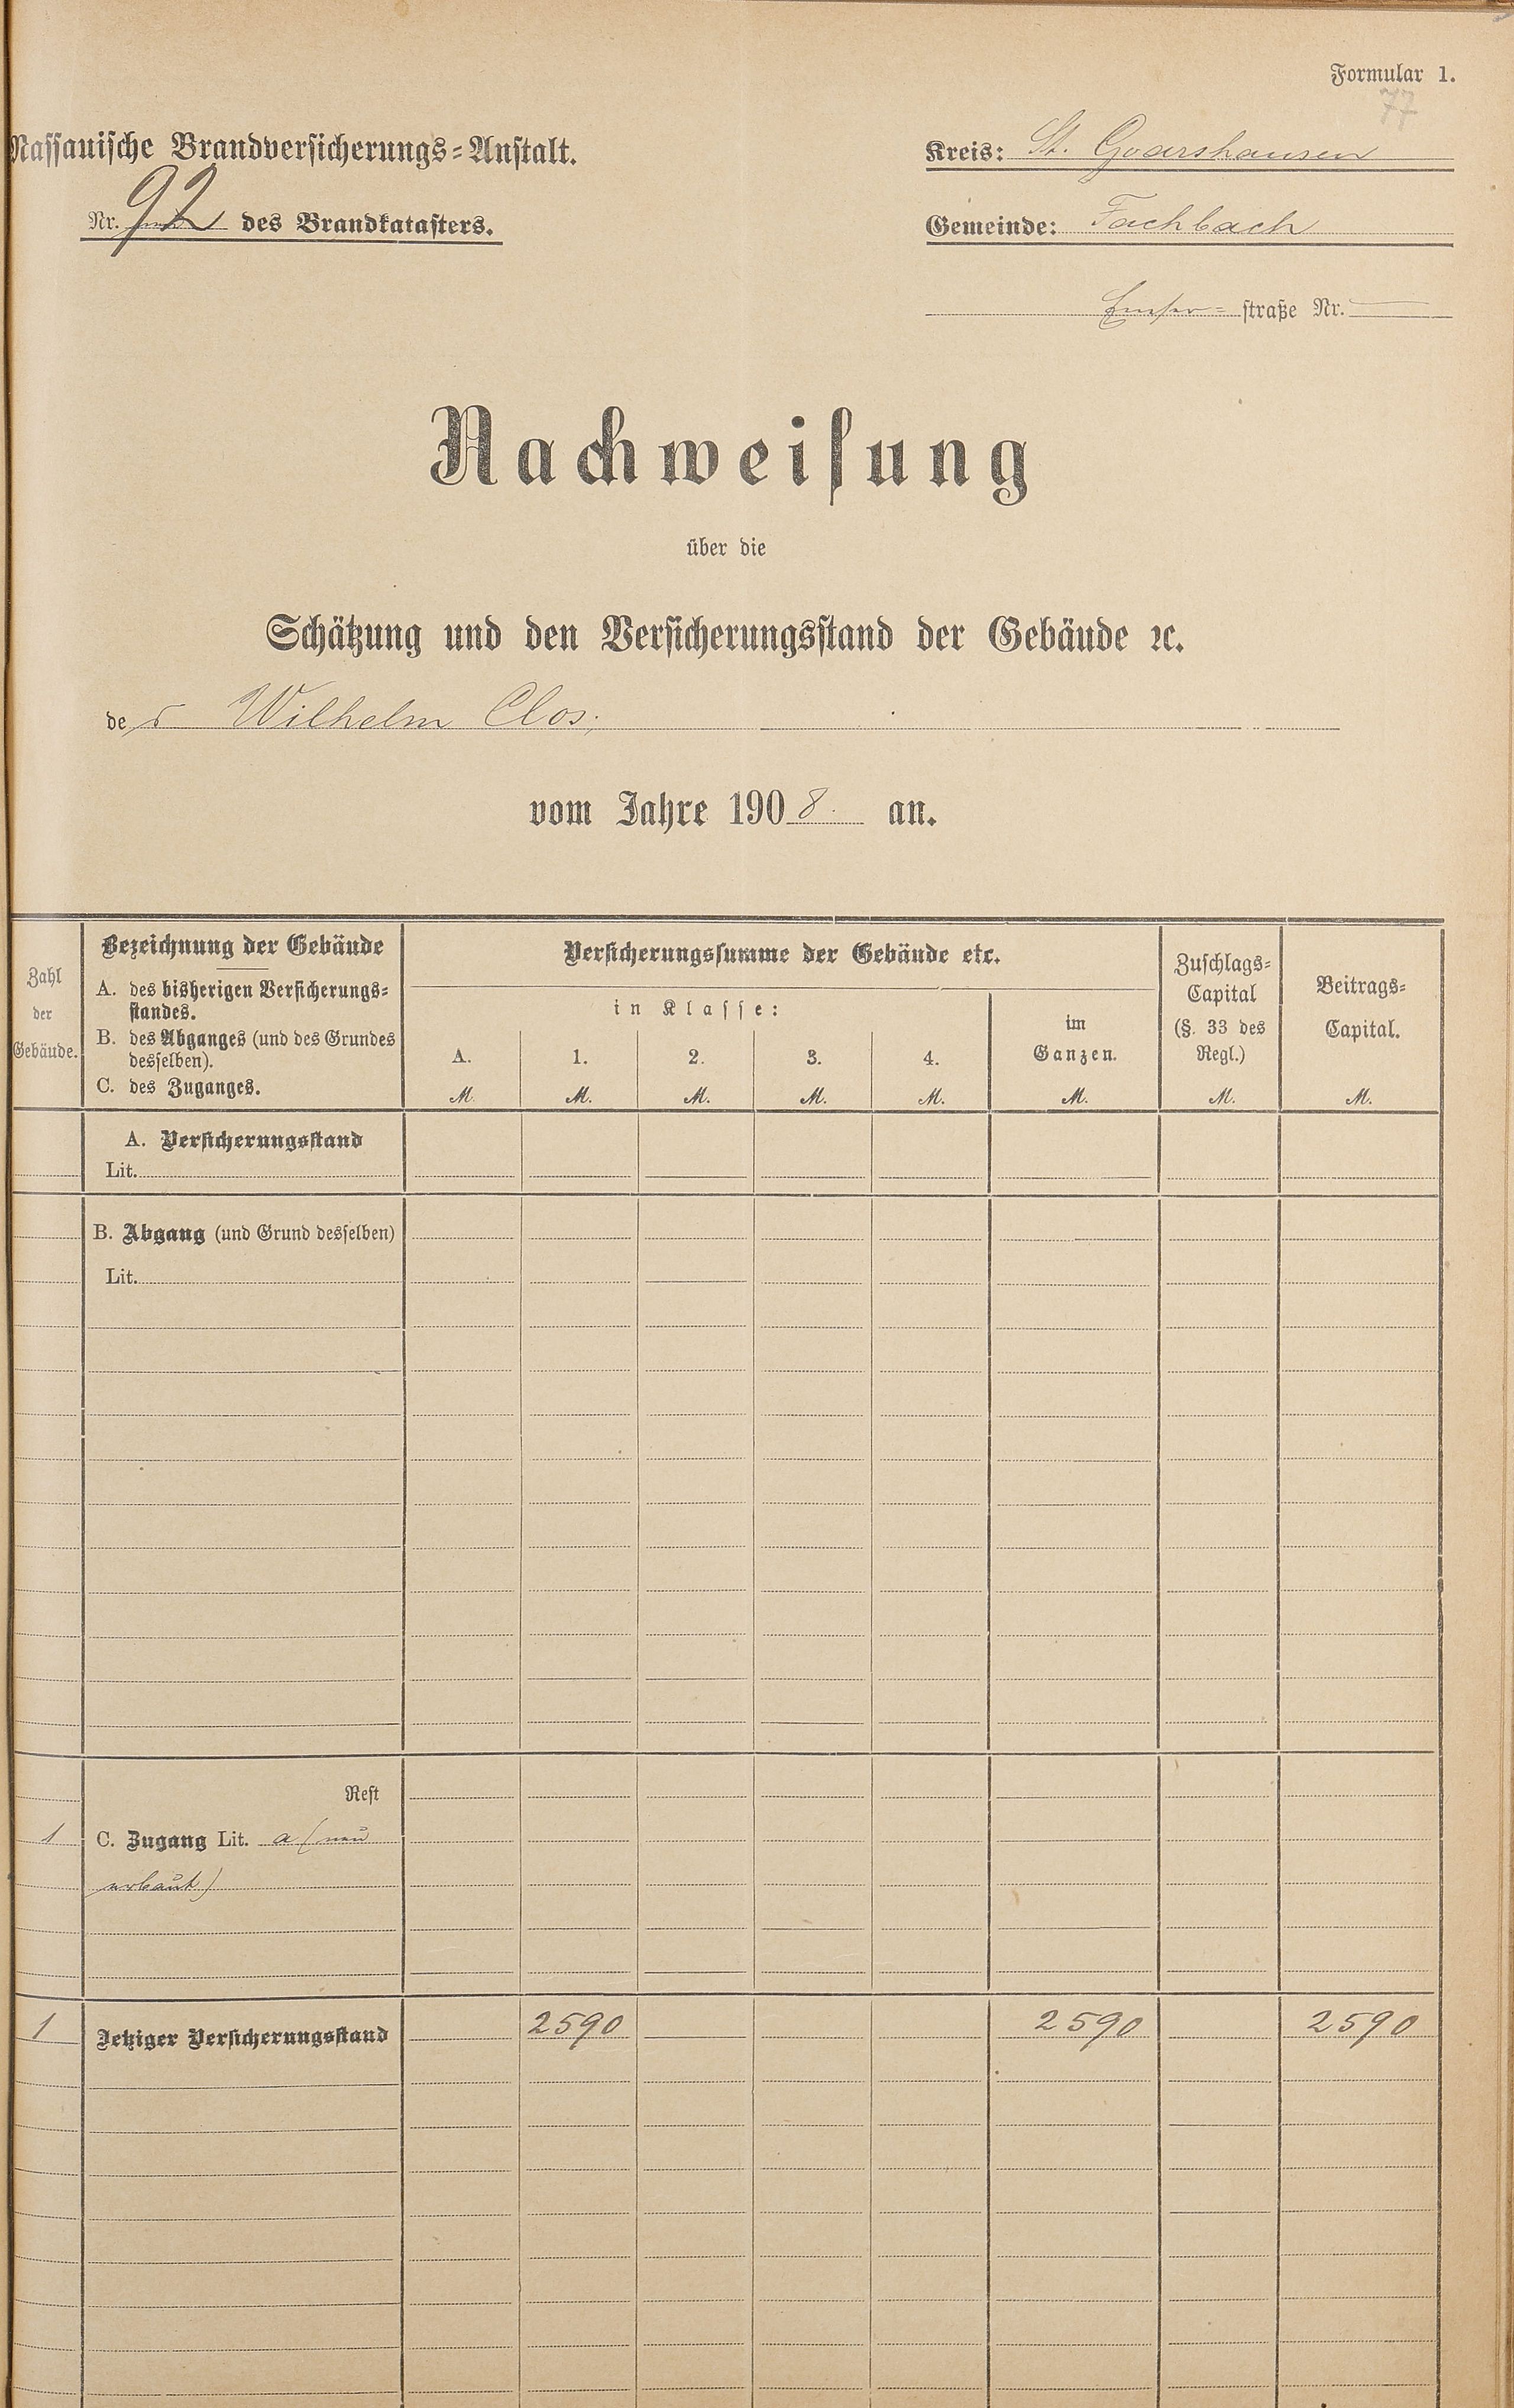 Formular 1.
77
Nassauische Brandversicherungs-Anstalt.
Kreis: St. Goarshausen
Nr. 92 des Brandkatasters.
Gemeinde: Fachbach
Emser-straße Nr.
Nachweisung
über die
Schätzung und den Versicherungsstand der Gebäude ꝛc.
des Wilhelm Clos.
vom Jahre 1908. an.
Zahl der Gebäude.
Bezeichnung der Gebäude
A. des bisherigen Versicherungs-
standes.
B. des Abganges (und des Grundes
desselben).
C. des Zuganges.
Versicherungssumme der Gebäude etc.
in Klasse:
A. 1. 2. 3. 4.
im
Ganzen.
Zuschlags-
Capital
(§. 33 des
Regl.)
Beitrags-
Capital.
M. M. M. M. M. M. M. M.
A. Versicherungsstand
Lit.
B. Abgang (und Grund desselben)
Lit.
Rest
1 C. Zugang Lit. a (neu
erbaut)
1 Jetziger Versicherungsstand 2590 2590 2590